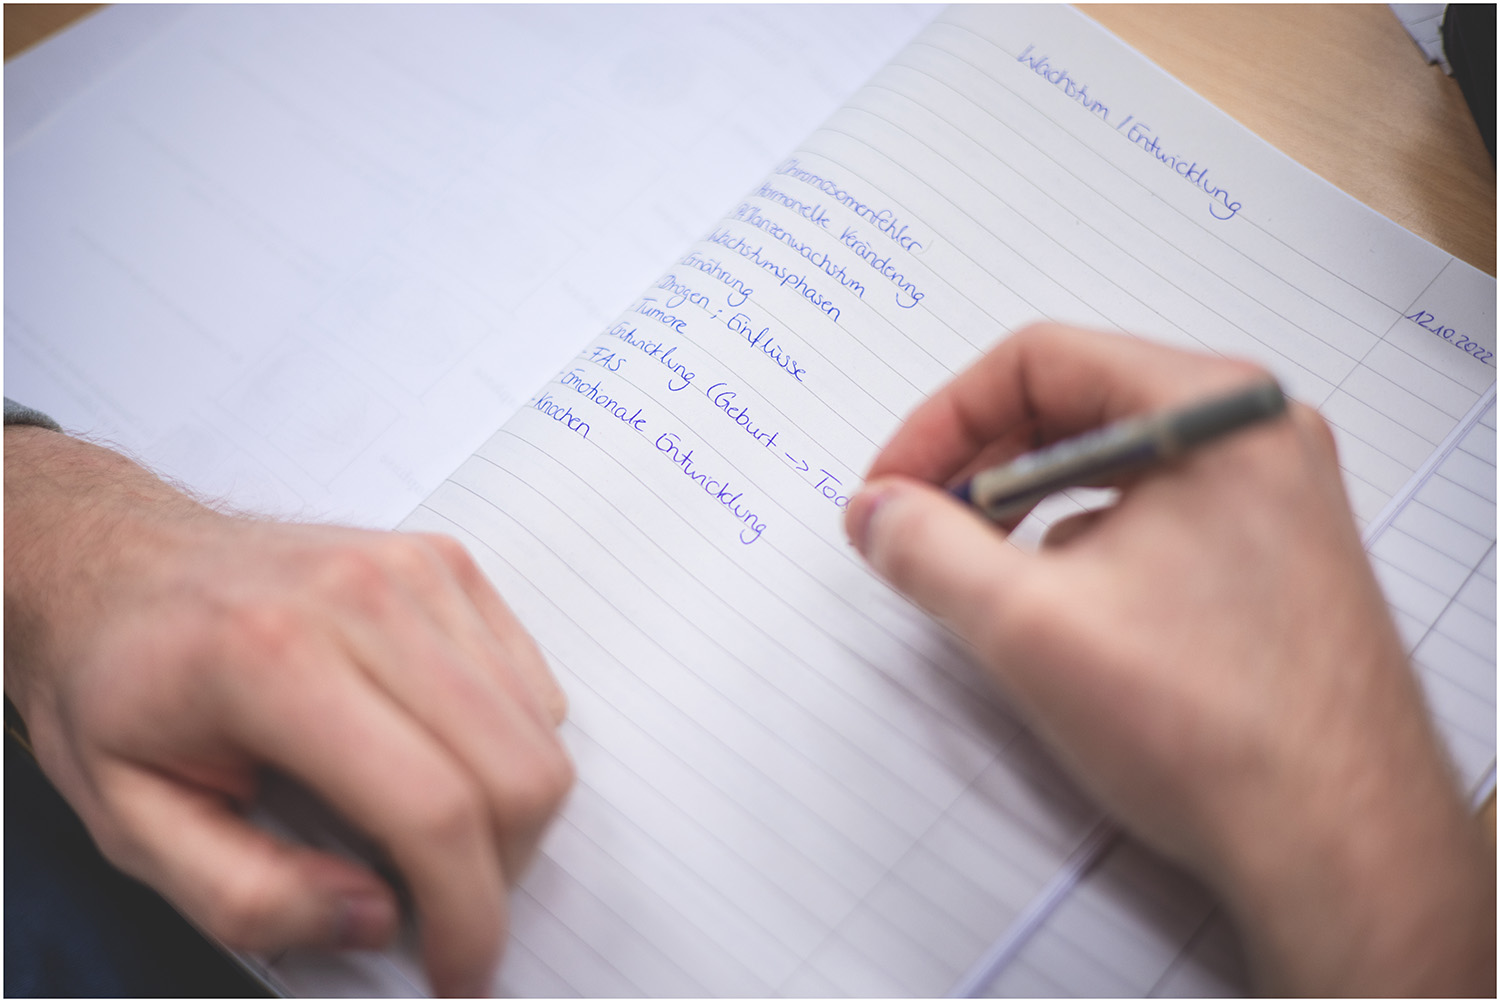 Wachstum / Entwicklung
12.10.2022
- Chromosomenfehler
- Hormonelle Veränderung
- Pflanzenwachstum
- Wachstumsphasen
- Ernährung
- Drogen ; Einflüsse
- Tumore
- Entwicklung (Geburt -> Tod
- FAS
- Emotionale Entwicklung
- Knochen